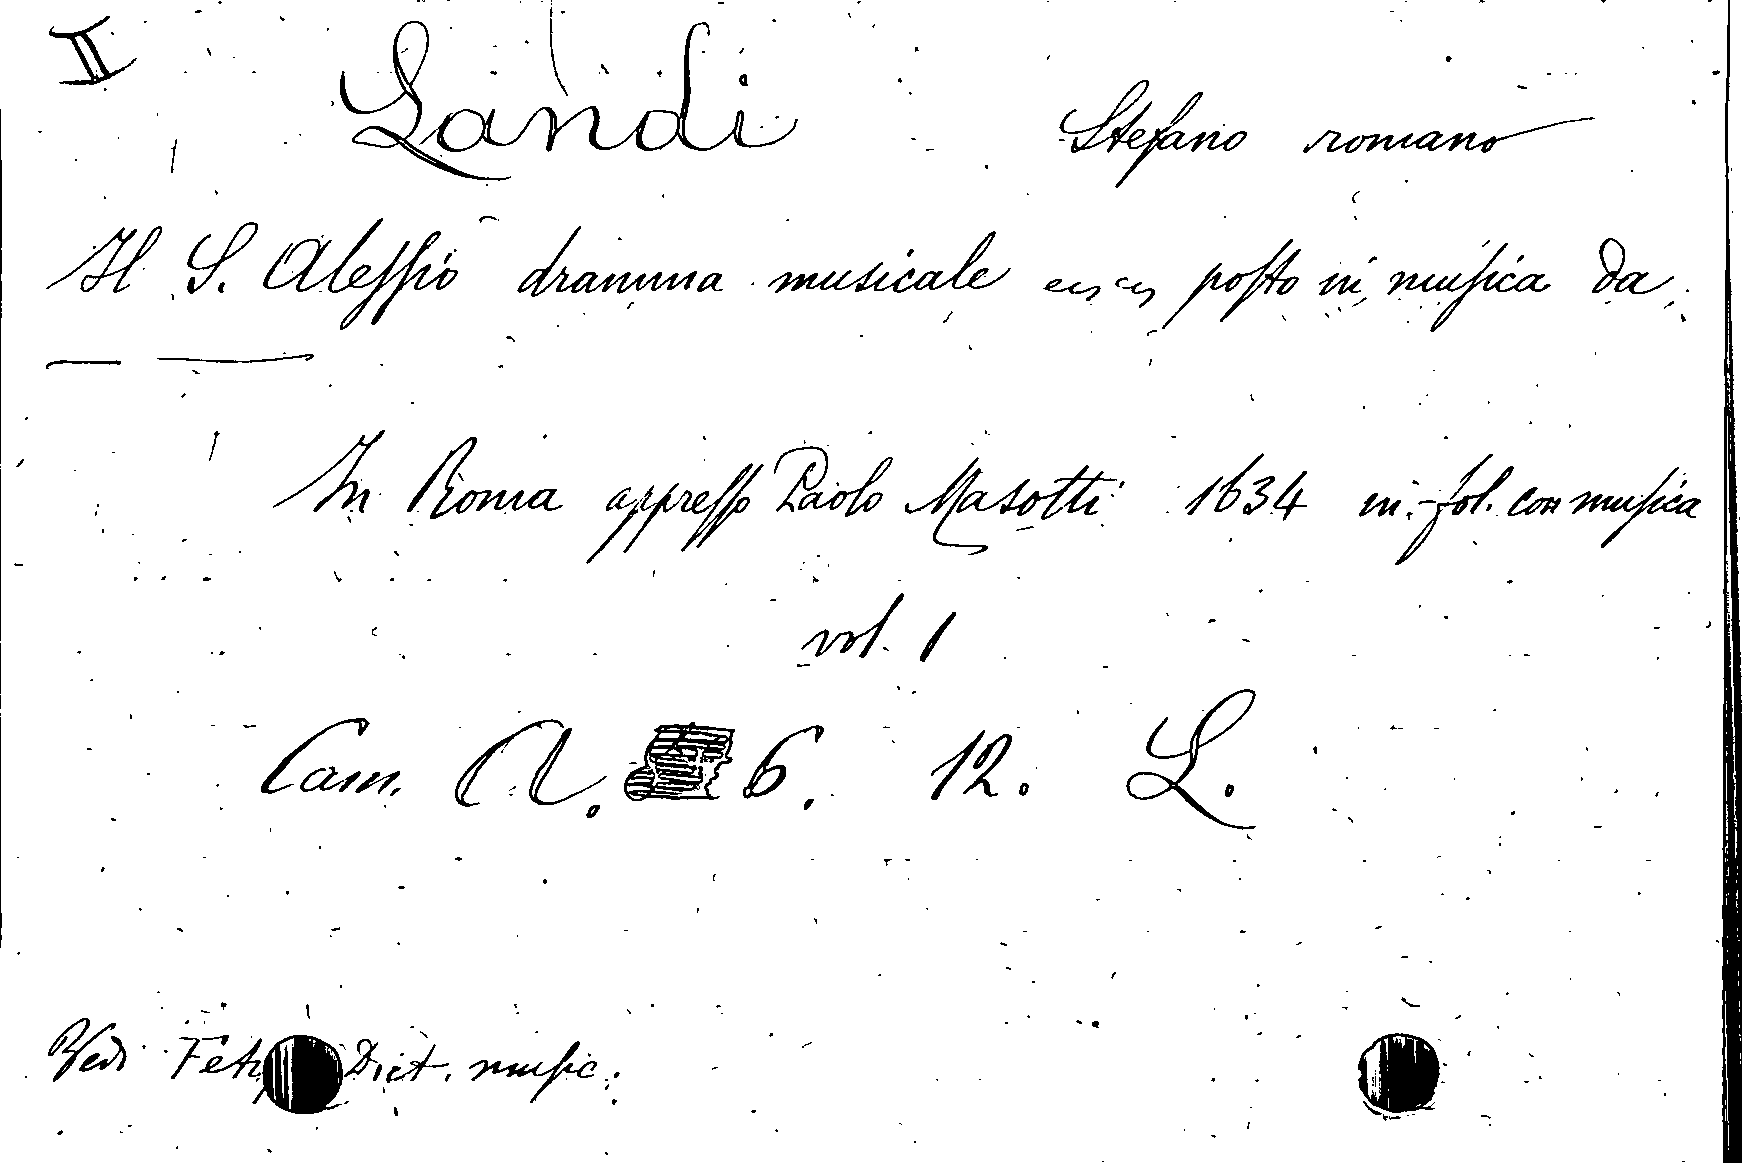 II
Landi Stefano romano
Il S. Alessio dramma musicale posto in musica da
— ——
In Roma appresso Paolo Masotti 1634 in-fol. con musica
vol. 1
Cam. A. 6. 12. L.
Vedi Dict. music.